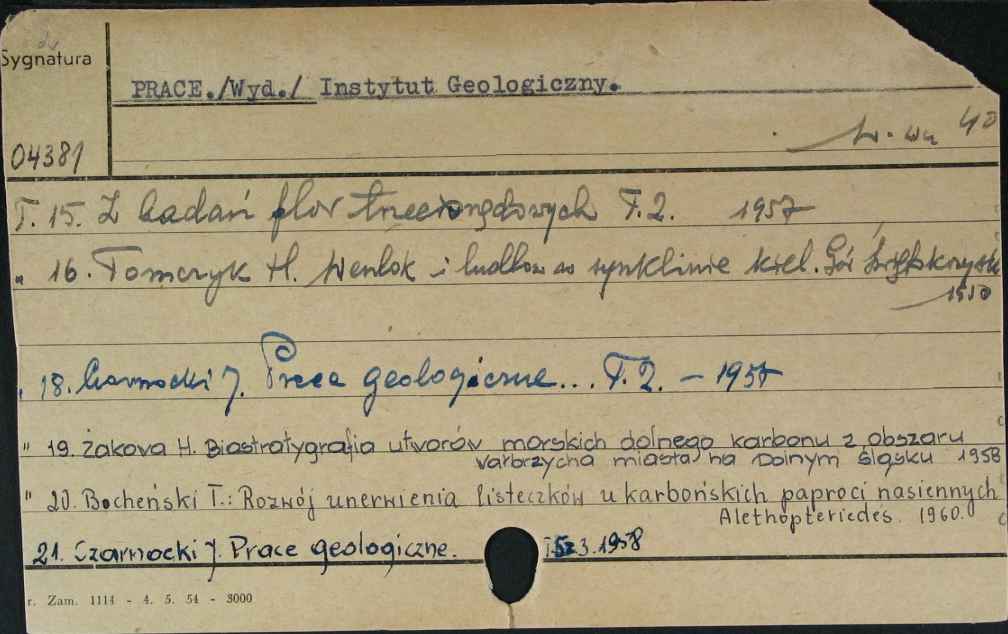 Sygnatura
PRACE./Wyd./ Instytut Geologiczny.
04381
T. 15. Z badań flor trzeciorzędowych T.2. 1957
" 16. Tomczyk H. Wenlok i ludlow w synklinie kiel. Gór Świętokrzyski
18. Czarnocki J. Prace geologiczne... T.2. - 1957
" 19. Żakowa H. Biostratygrafia utworów morskich dolnego karbonu z obszaru
Wałbrzycha miasta na Dolnym Śląsku 1958
" 20. Bocheński T.: Rozwój unerwienia listeczków u karbońskich paproci nasiennych
Alethopteriedes. 1960.
21. Czarnocki J. Prace geologiczne. 3. 1958
r. Zam. 1114 - 4. 5. 54 - 3000